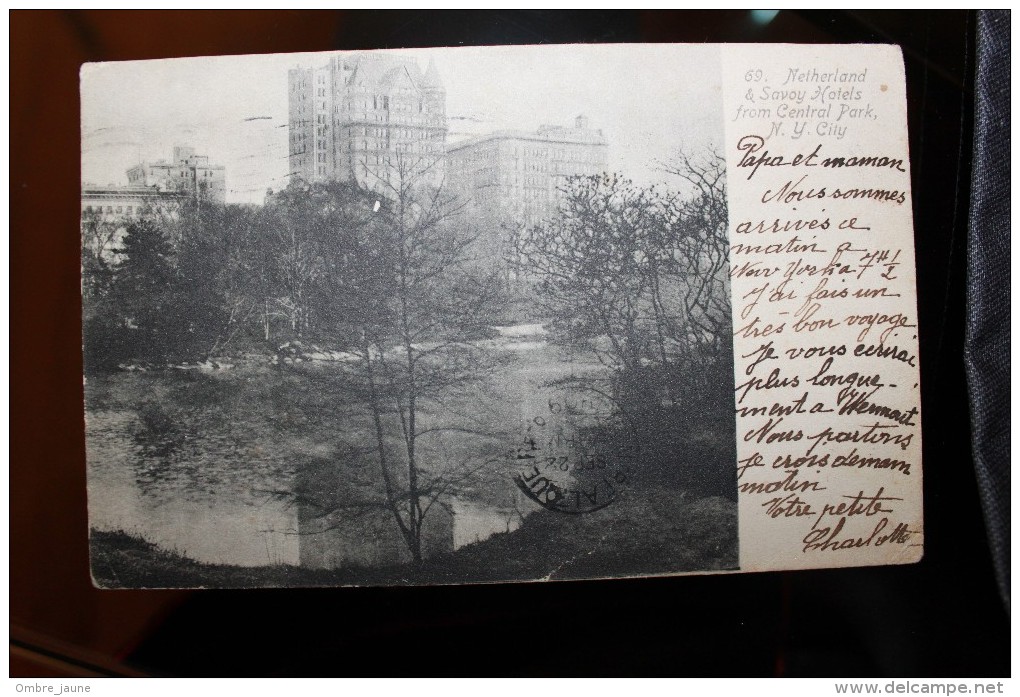 69. Netherland
& Savoy Hotels
from Central Park,
N. Y. City
Papa et maman
Nous sommes
arrivés ce
matin a
New York a 7 H 1/2
J'ai fais un
très bon voyage
Je vous ecrirai
plus longue-
ment a
Nous partons
je crois demain
matin
Votre petite
Charlotte
SEP 22
Ombre_jaune
www.delcampe.net